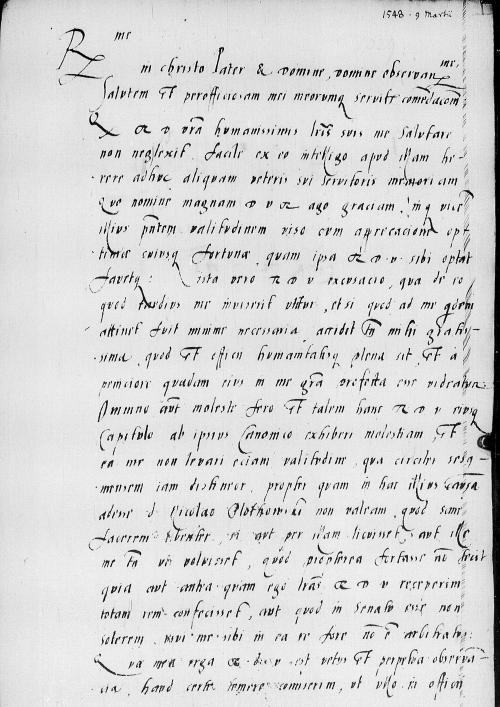 1548 9 Martii
R me
in christo Pater & Domine, Domine observan me.
Salutem Et perofficiosam mei meorumq servitii comẽdacõm
Q R D vrã humanissimis lrĩs suis me salutare
non neglexit, facile ex eo intelligo apud illam he-
rere adhuc aliquam veteris sui servitoris memoriam
Quo nomine magnam D v R ago graciam,
illius pñtem valitudinem viso cum apprecacione opt
time cuiusq fortunæ, quam ipsa R D v sibi optat
favetq: Ista vero R D v excusacio, qua de eo
quod tardius me inviserit utitur, etsi quod ad me qdem
attinet fuit minime necessaria, accidit tñ mihi gratis-
sima, quod Et officii humanitatisq plena sit, Et à
veteri quadam eius in me grã profecta esse videatur.
Omnino aũt moleste fero Et talem hanc R D v eiusq
Capitulo ab ipsius Canonico exhiberi molestiam, Et
ea me non levari eciam valitudine, qua circiter sesq-
mensem iam distineor, propter quam in hac illius causa
adesse d Nicolao Plothowski non valeam, quod sane
facerem libenter, si aut per illam licuisset, aut ille
me tñ uti voluisset, quod propterea fortasse nõ fecit
quia aut antea quam ego lrãs R D v receperim
totam rem confecisset, aut quod in senatu esse non
solerem, usui me sibi in ea re fore nõ ẽ arbitratus:
Quæ mea erga R. D. v est vetus Et perpetua observã-
cia, haud certe temere comiserim, ut ullo in officii